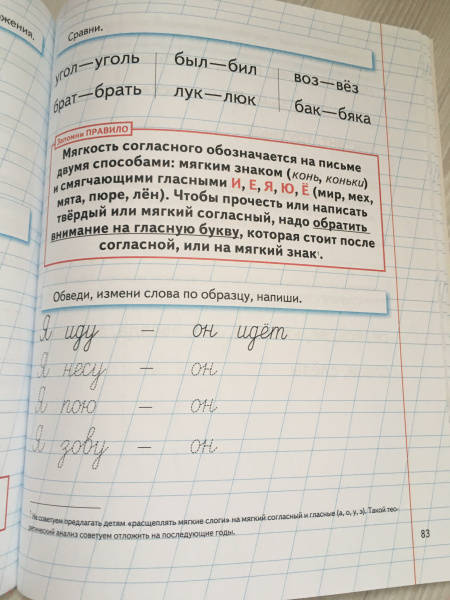 ожения.
Сравни.
угол—уголь был—бил воз—вёз
брат—брать лук—люк бак—бяка
Запомни ПРАВИЛО
Мягкость согласного обозначается на письме
двумя способами: мягким знаком (конь, коньки)
и смягчающими гласными И, Е, Я, Ю, Ё (мир, мех,
мята, пюре, лён). Чтобы прочесть или написать
твёрдый или мягкий согласный, надо обратить
внимание на гласную букву, которая стоит после
согласной, или на мягкий знак¹.
Обведи, измени слова по образцу, напиши.
Я иду — он идёт
Я несу — он
Я пою — он
Я зову — он
¹ Не советуем предлагать детям «расщеплять мягкие слоги» на мягкий согласный и гласные (а, о, у, э). Такой тео-
ретический анализ советуем отложить на последующие годы.
83